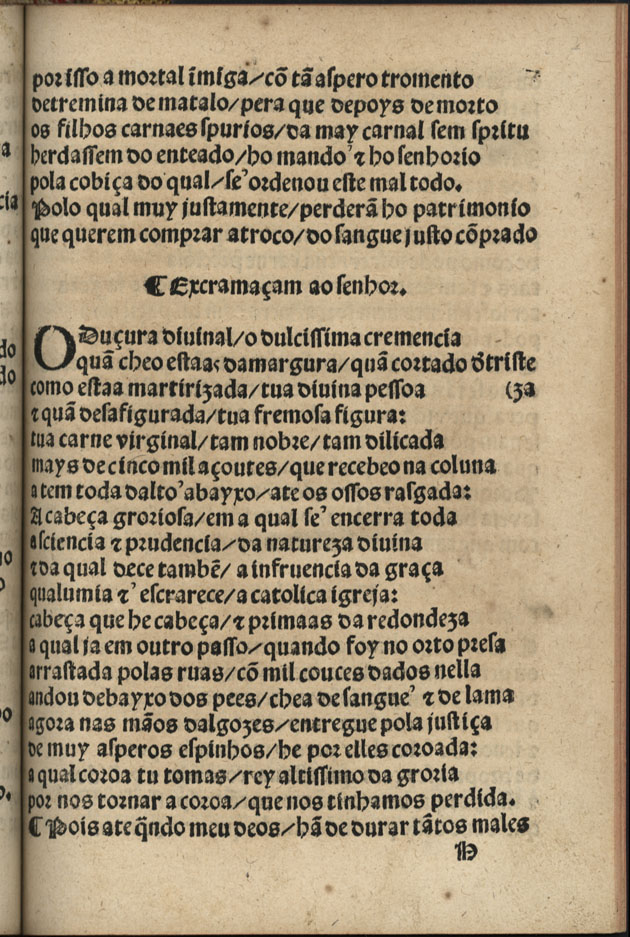 por isso a mortal ĩmiga/cõ tã aspero tromento
detremina de matalo/pera que depoys de morto
os filhos carnaes spurios/da may carnal sem spritu
herdassem do enteado/ho mando' ⁊ ho senhorio
pola cobiça do qual/se' ordenou este mal todo.
Polo qual muy justamente/perderã ho patrimonio
que querem comprar atroco/do sangue justo cõprado
¶ Excramaçam ao senhor.
O Duçura divinal/o dulcissima cremencia
quã cheo estaas damargura/quã cortado d̃triste
como estaa martirizada/tua divina pessoa (za
⁊ quã desafigurada/tua fremosa figura:
tua carne virginal/tam nobre/tam dilicada
mays de cinco mil açoutes/que recebeo na coluna
a tem toda dalto' abayxo/ate os ossos rasgada:
A cabeça groriosa/em a qual se' encerra toda
a sciencia ⁊ prudencia/da natureza divina
⁊ da qual dece tambẽ/a infruencia da graça
qualumia ⁊' escrarece/a catolica igreja:
cabeça que he cabeça/⁊ primaas da redondeza
a qual ja em outro passo/quando foy no orto presa
arrastada polas ruas/cõ mil couces dados nella
andou debayxo dos pees/chea de sangue' ⁊ de lama
agora nas mãos dalgozes/entregue pola justiça
de muy asperos espinhos/he por elles coroada:
a qual coroa tu tomas/rey altissimo da groria
por nos tornar a coroa/que nos tinhamos perdida.
¶ Pois ate q̃ndo meu deos/hã de durar tãtos males